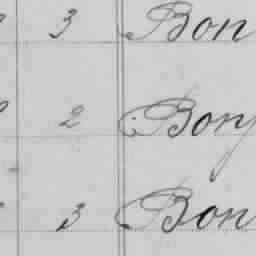 3 Bon
2 Bon
3 Bon